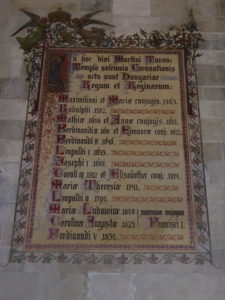 In hoc divi Martini Turon:
Templo solemnia Coronationis
acta sunt Hungariae
Regum et Reginarum:
Maximiliani et Mariae conjugis, 1563.
Rudolphi 1572.
Mathiae 1608 et Annae conjugis, 1613.
Ferdinandi II 1618 et Eleonorae conj. 1622.
Ferdinandi
Leopoldi I. 1655.
Josephi I. 1687.
Caroli III 1712 et Elisabethae conj. 1714.
Mariae Theresiae 1741.
Leopoldi II 1790.
Mariae Ludovicae 1808
Carolinae Augustae 1825 Francisci I.
Ferdinandi V. 1830.